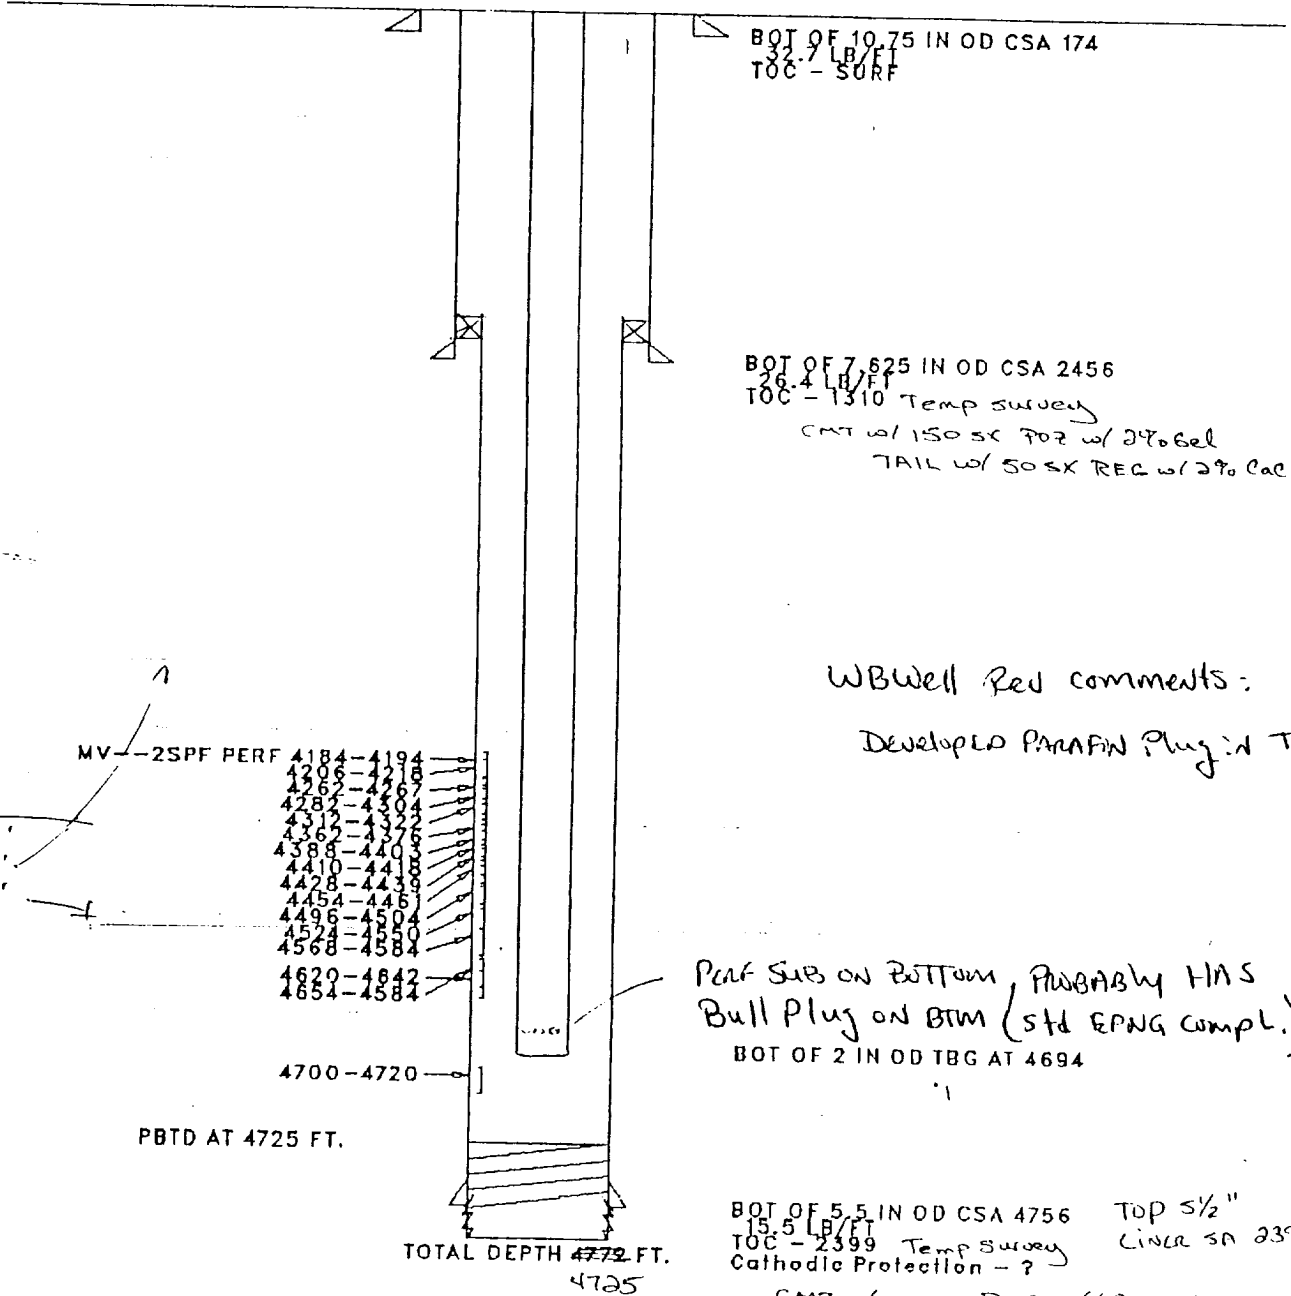 BOT OF 10.75 IN OD CSA 174
32.7 LB/FT
TOC - SURF
BOT OF 7.625 IN OD CSA 2456
26.4 LB/FT
TOC - 1310 Temp survey
CMT w/ 150 SX POZ w/ 2% Gel
TAIL w/ 50 SX REG w/ 2% CaC
WBWell Rev comments:
Developed PARAFIN Plug in T
MV--2SPF PERF 4184-4194
4206-4218
4262-4267
4282-4304
4312-4322
4362-4376
4388-4403
4410-4418
4428-4439
4454-4461
4496-4504
4524-4550
4568-4584
4620-4642
4654-4584
Perf SUB ON BOTTOM, PROBABLY HAS
Bull Plug ON BTM (std EPNG compl.)
BOT OF 2 IN OD TBG AT 4694
4700-4720
PBTD AT 4725 FT.
BOT OF 5.5 IN OD CSA 4756 TOP 5 1/2"
15.5 LB/FT
TOC - 2399 Temp Survey LINER SA 239
Cathodic Protection - ?
TOTAL DEPTH 4772 FT.
4725